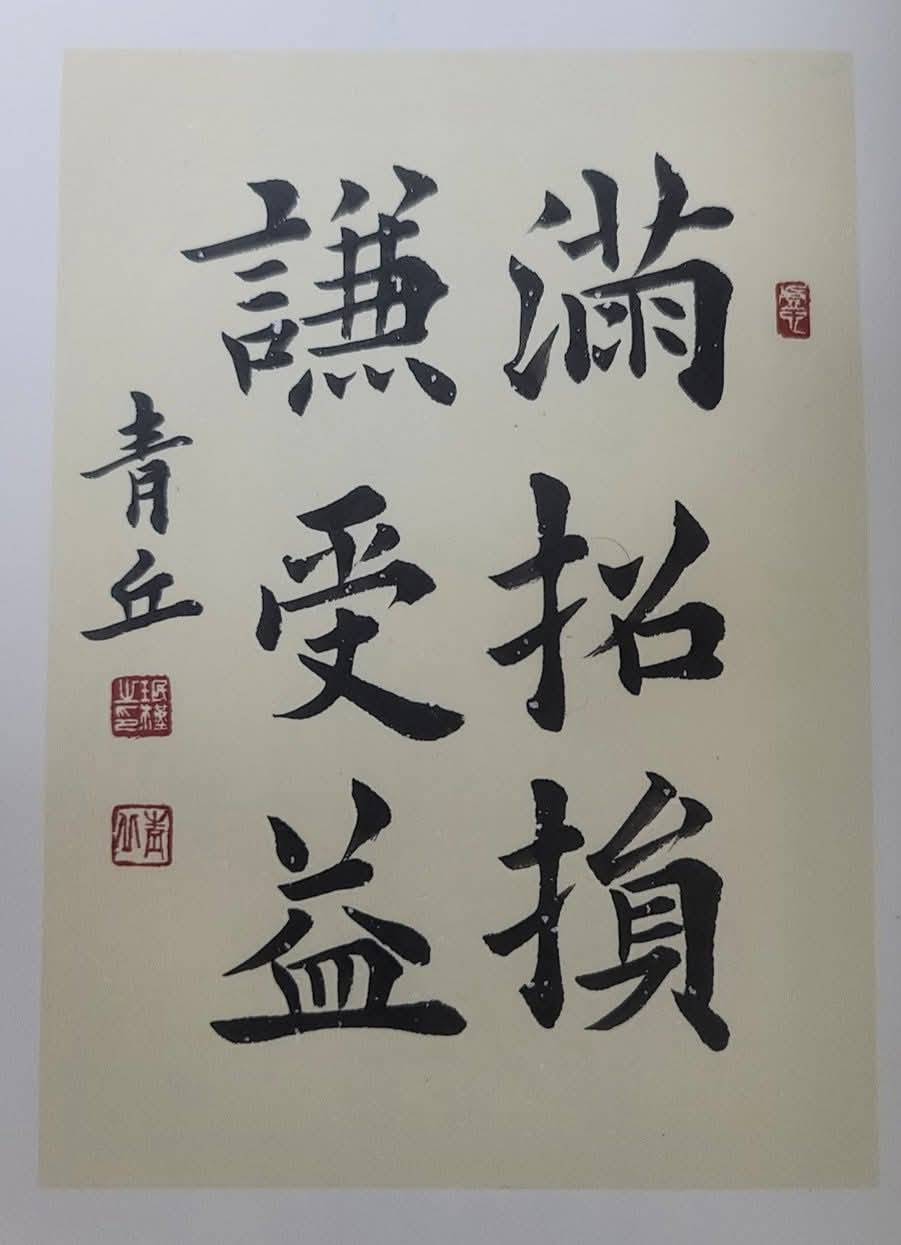 滿招損
謙受益
青丘
青丘